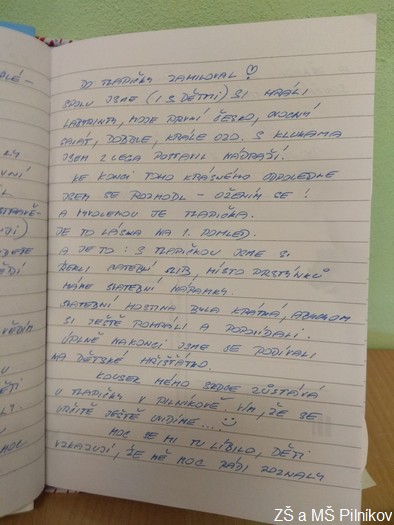 DO TLAPIČKY ZAMILOVAL
SPOLU JSME (I S DĚTMI) SI HRÁLI
LABYRINTY, MOJE PRVNÍ ČESKO, OVOCNÝ
SALÁT, DOBBLE, KRÁLE S KLUKAMA
JSEM Z LEGA POSTAVIL NÁDRAŽÍ.
KE KONCI TOHO KRÁSNÉHO ODPOLEDNE
JSEM SE ROZHODL – OŽENÍM SE!
A MILENOU JE TLAPIČKA.
JE TO LÁSKA NA 1. POHLED.
A JE TO: S TLAPIČKOU JSME SI
ŘEKLI SVATEBNÍ SLIB, MÍSTO PRSTÝNKŮ
MÁME SVATEBNÍ NÁRAMKY.
SVATEBNÍ HOSTINA BYLA KRÁTKÁ, ABYCHOM
SI JEŠTĚ POHRÁLI A POPOVÍDALI.
ÚPLNĚ NAKONCI JSME SE PODÍVALI
NA DĚTSKÉ HŘIŠŤÁTKO.
KOUSEK MÉHO SRDCE ZŮSTÁVÁ
U TLAPIČKY V PILNÍKOVĚ. VÍM, ŽE SE
URČITĚ JEŠTĚ UVIDÍME....
MOC SE MI TU LÍBILO, DĚTI
VZKAZUJÍ, ŽE MĚ MOC RÁDI POZNALY
ZŠ a MŠ Pilníkov